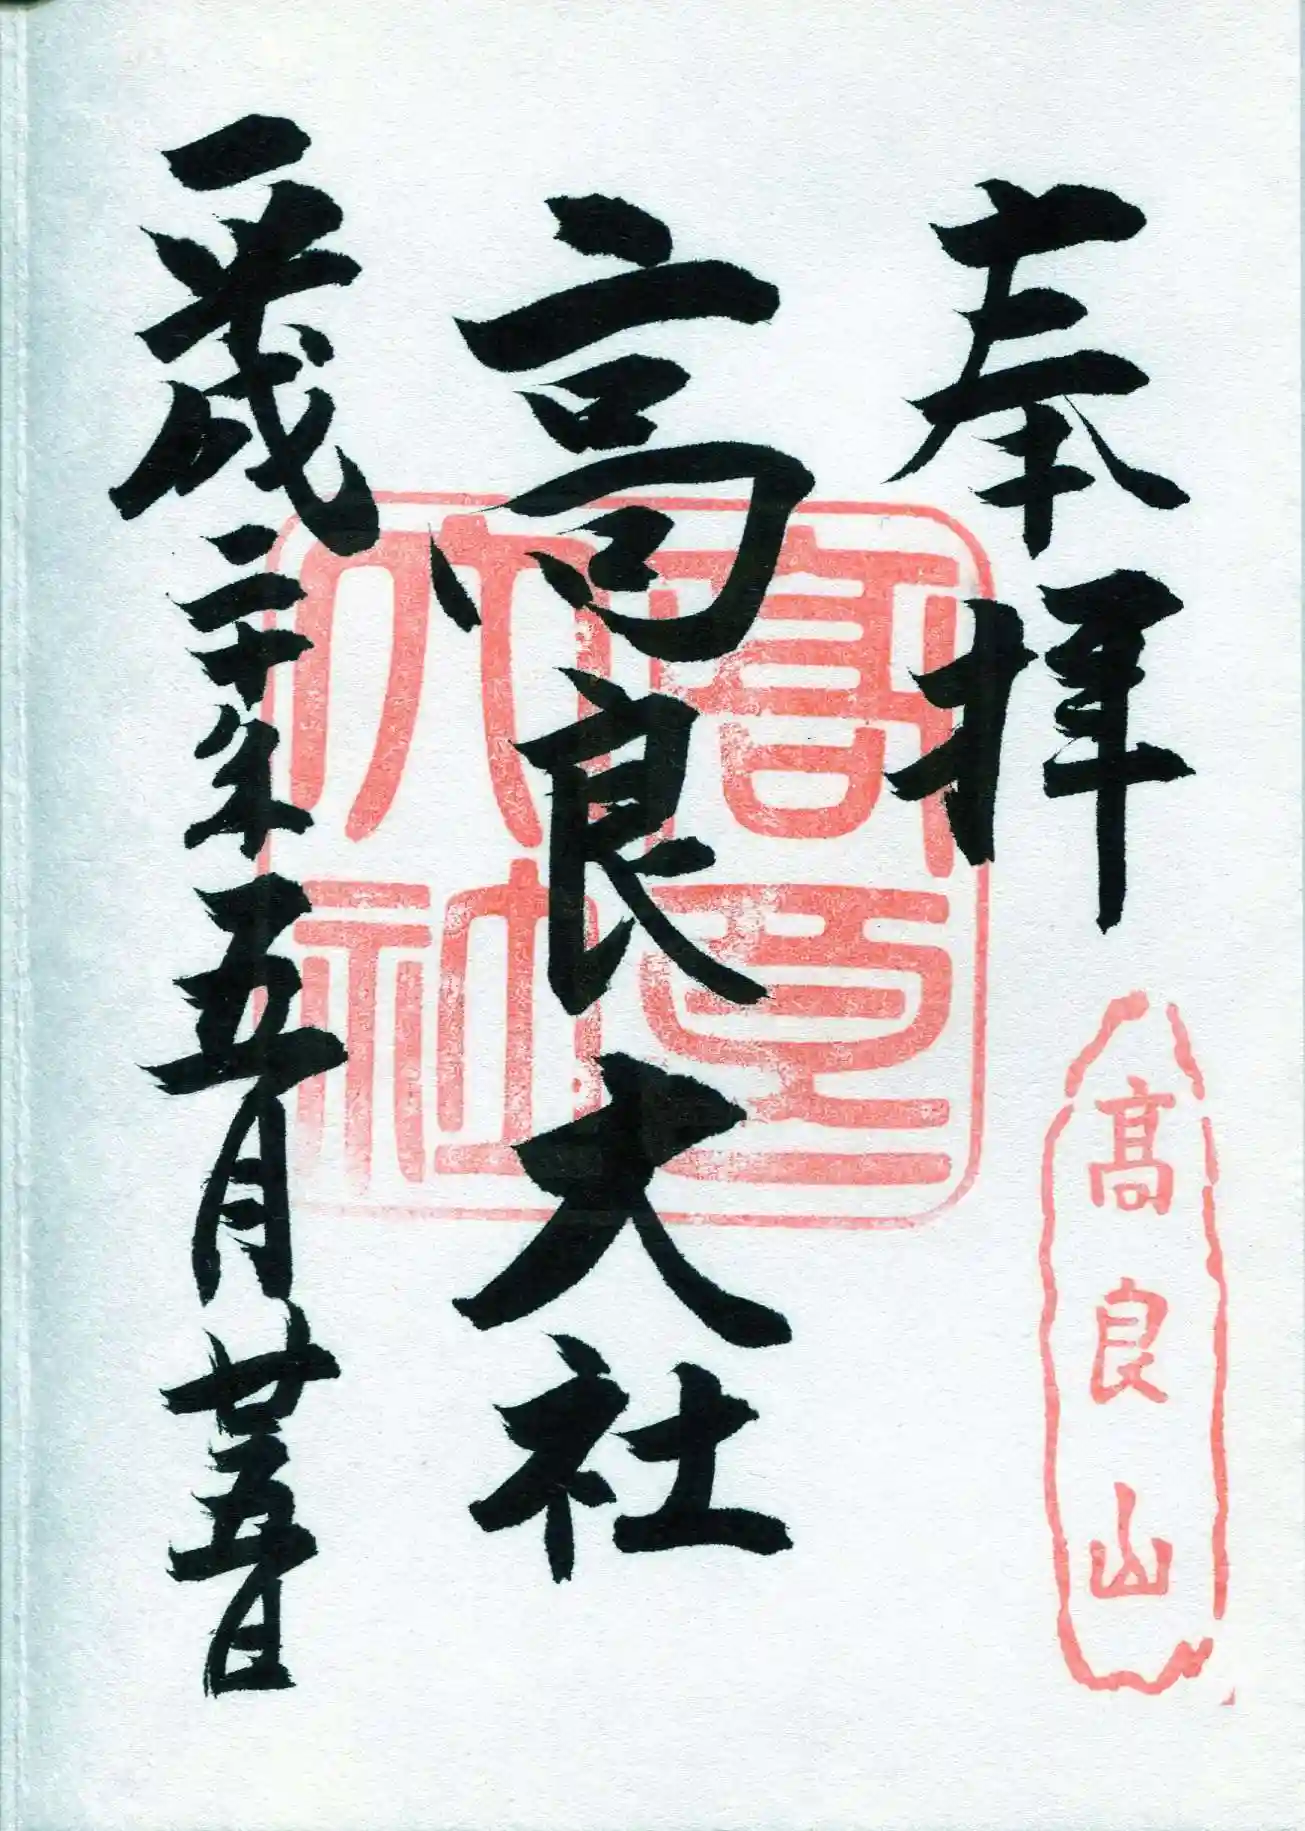 奉拝
高良山
高良大社
高良大社
平成二十年五月廿五日